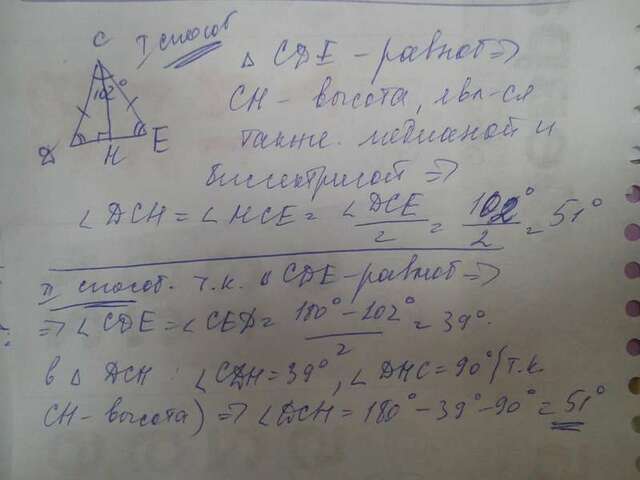 C
I способ
102°
D
H
E
△ CDE - равноб ⇒
CH - высота, явл-ся
также медианой и
биссектрисой ⇒
∠DCH = ∠HCE = ∠DCE/2 = 102°/2 = 51°
II способ. т.к. △ CDE - равноб ⇒
⇒ ∠CDE = ∠CED = 180° - 102°/2 = 39°.
в △ DCH : ∠CDH = 39°, ∠DHC = 90° (т.к.
CH - высота) ⇒ ∠DCH = 180° - 39° - 90° = 51°